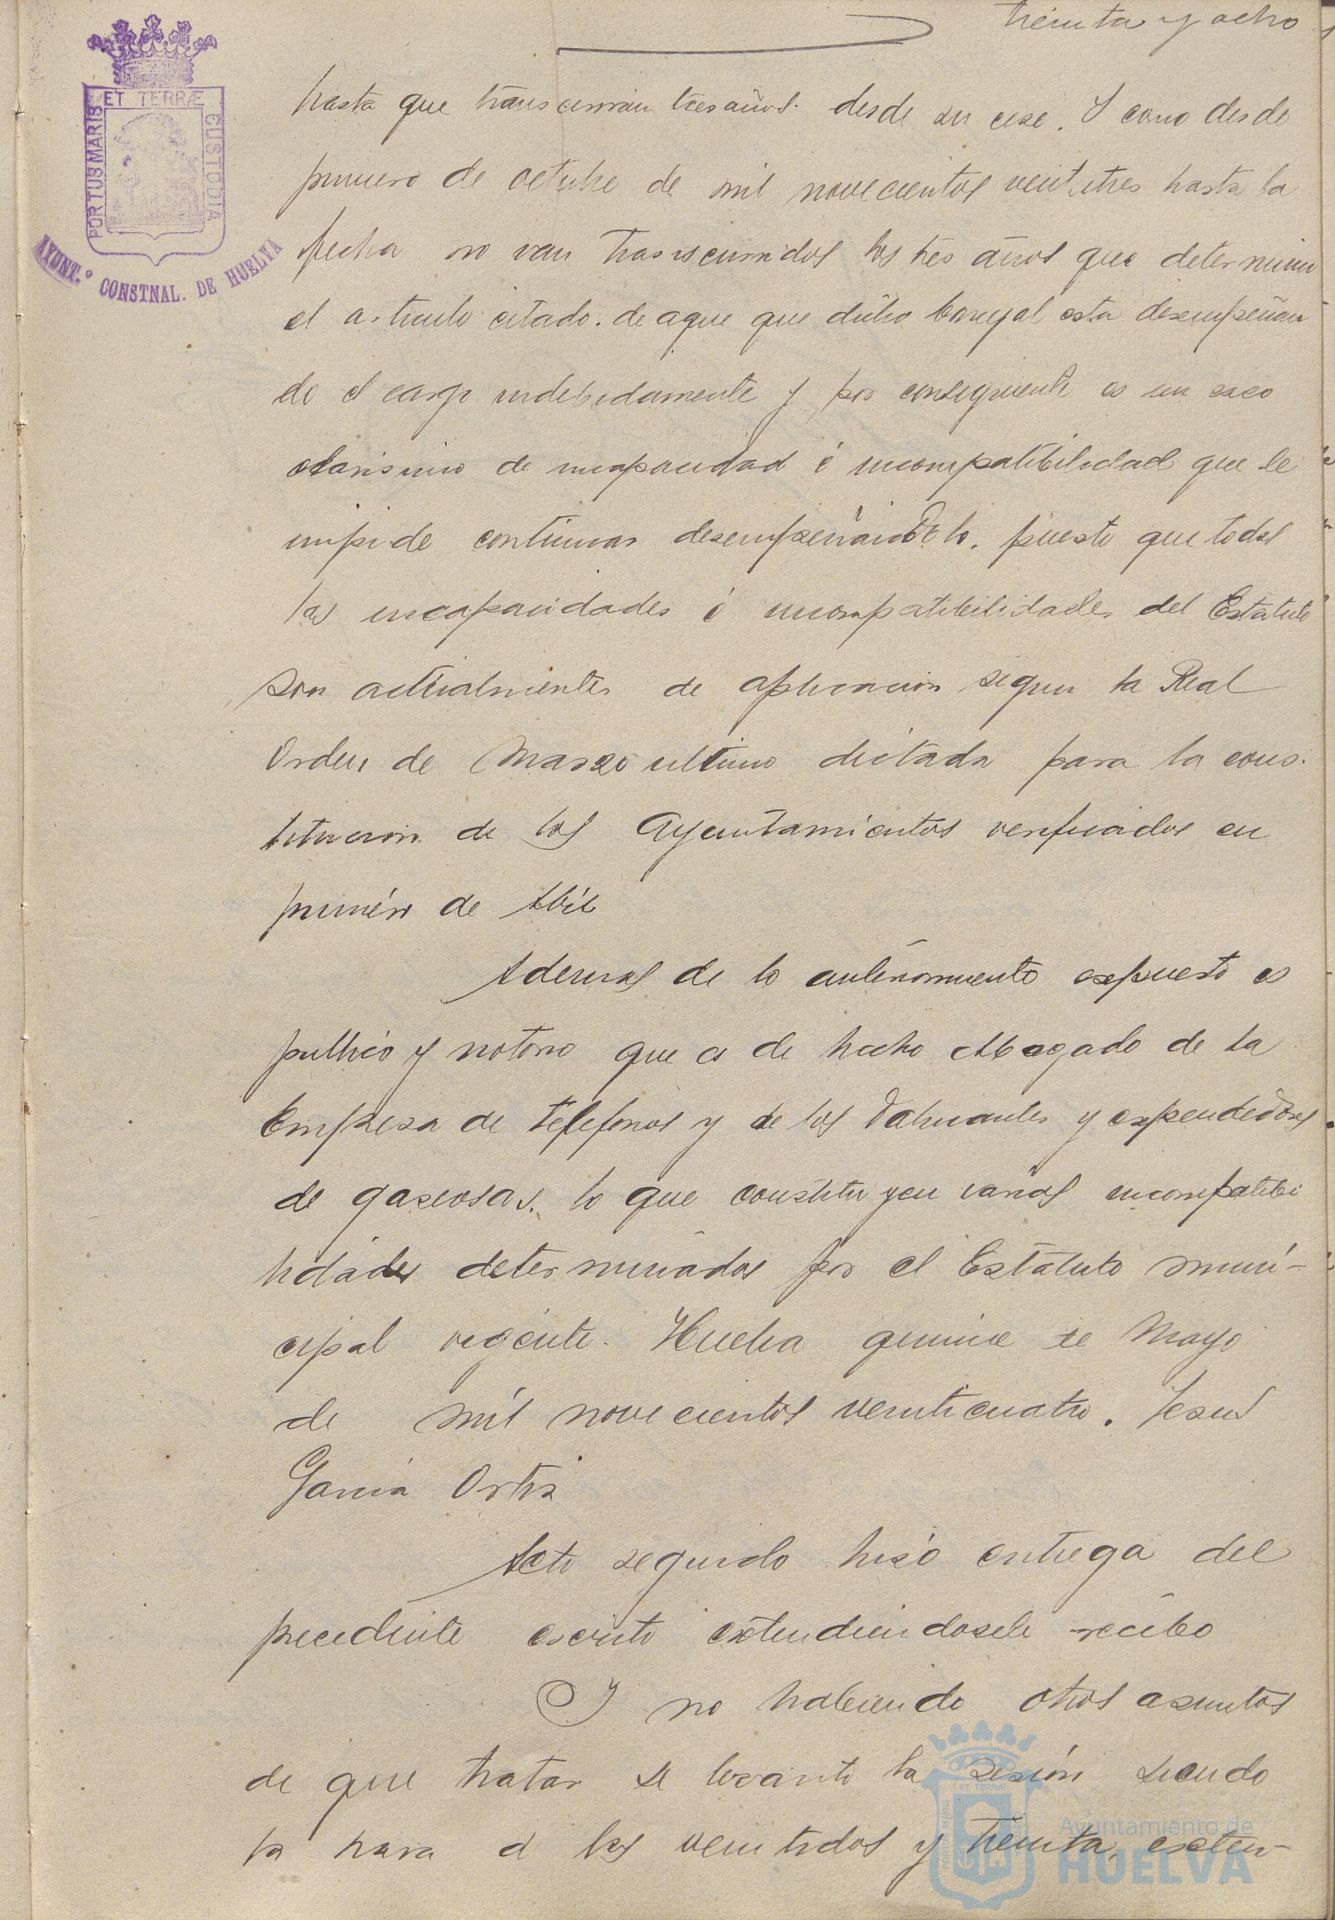 treinta y ocho
PORTUS MARIS ET TERRÆ CUSTODIA
AYUNT.º CONSTNAL. DE HUELVA
hasta que transcurran tres años desde su cese. Y como desde
primero de octubre de mil novecientos veintitres hasta la
fecha no van trascurridos los tres años que determina
el articulo citado. de aque que dicho Concejal esta desempeñan
do el cargo indebidamente y por consiguiente es un caso
clarisimo de incapacidad é incompatibilidad que le
impide continuar desempeñandolo, puesto que todas
las incapacidades é incompatibilidades del Estatuto
son actualmente de aplicacion segun la Real
Orden de Marzo ultimo dictada para la cons-
titucion de los Ayuntamientos verificados en
primero de Abril
Ademas de lo anteriormente expuesto es
publico y notorio que es de hecho Abogado de la
Empresa de Telefonos y de los fabricantes y expendedores
de gaseosas, lo que constituyen varias incompatibi
lidades determinados por el Estatuto muni-
cipal vigente. Huelva quince de Mayo
de mil novecientos veinticuatro. Jesus
Garcia Ortiz
Acto seguido hizo entrega del
precedente escrito extendiendosele recibo
Y no habiendo otros asuntos
de que tratar se levanto la sesión siendo
la hora de las veintidos y treinta, exten-
Ayuntamiento de
HUELVA